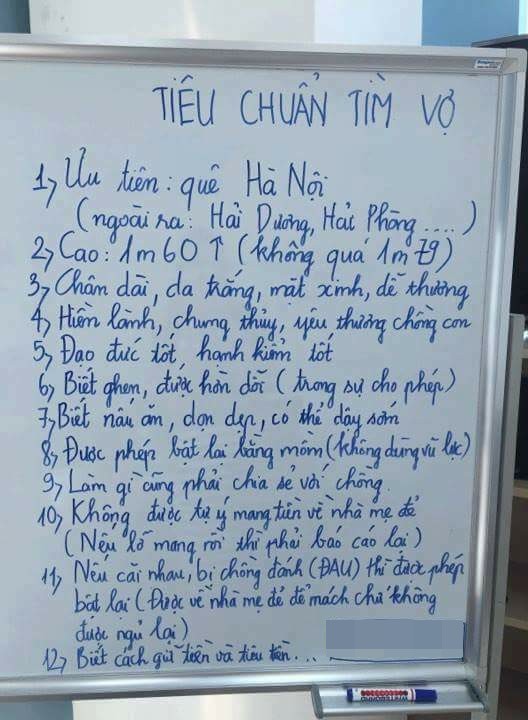 TIÊU CHUẨN TÌM VỢ
1, Ưu tiên: quê Hà Nội
(ngoài ra: Hải Dương, Hải Phòng ....)
2, Cao: 1m60 ↑ (không quá 1m79)
3, Chân dài, da trắng, mặt xinh, dễ thương
4, Hiền lành, chung thủy, yêu thương chồng con
5, Đạo đức tốt, hạnh kiểm tốt
6, Biết ghen, được hờn dỗi (trong sự cho phép)
7, Biết nấu ăn, dọn dẹp, có thể dậy sớm
8, Được phép bật lại bằng mồm (không dùng vũ lực)
9, Làm gì cũng phải chia sẻ với chồng
10, Không được tự ý mang tiền về nhà mẹ đẻ
(Nếu lỡ mang rồi thì phải báo cáo lại)
11, Nếu cãi nhau, bị chồng đánh (ĐAU) thì được phép
bật lại (Được về nhà mẹ đẻ để mách chứ không
được ngủ lại)
12, Biết cách gửi tiền và tiêu tiền...